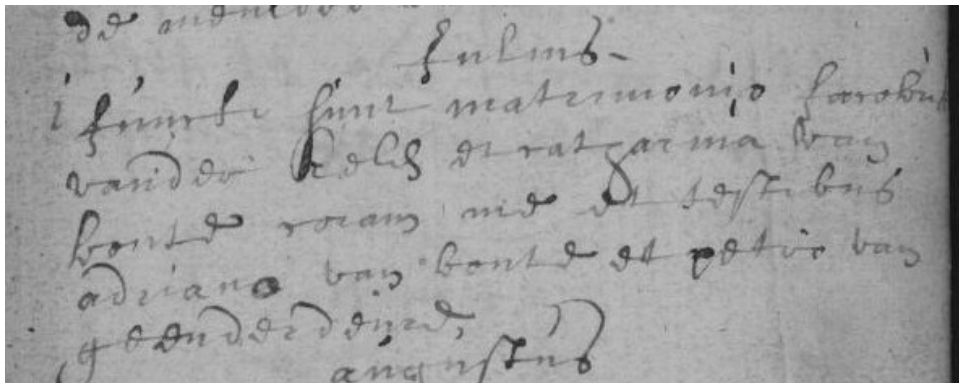 de
Julius
1 Juncti sunt matrimonio Jacobus
vander et catharina van
bonte coram me et testibus
adriano van bonte et petro van
augustus